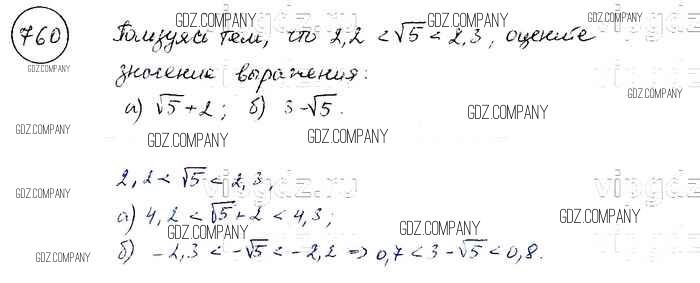 760
Пользуясь тем, что 2,2 < √5 < 2,3, оцените
значение выражения:
а) √5 + 2; б) 3 - √5.
2,2 < √5 < 2,3,
а) 4,2 < √5 + 2 < 4,3;
б) -2,3 < -√5 < -2,2 => 0,7 < 3 - √5 < 0,8.
GDZ.COMPANY
GDZ.COMPANY
GDZ.COMPANY
GDZ.COMPANY
GDZ.COMPANY
GDZ.COMPANY
GDZ.COMPANY
GDZ.COMPANY
GDZ.COMPANY
GDZ.COMPANY
GDZ.COMPANY
GDZ.COMPANY
GDZ.COMPANY
GDZ.COMPANY
vipgdz.ru
vipgdz.ru